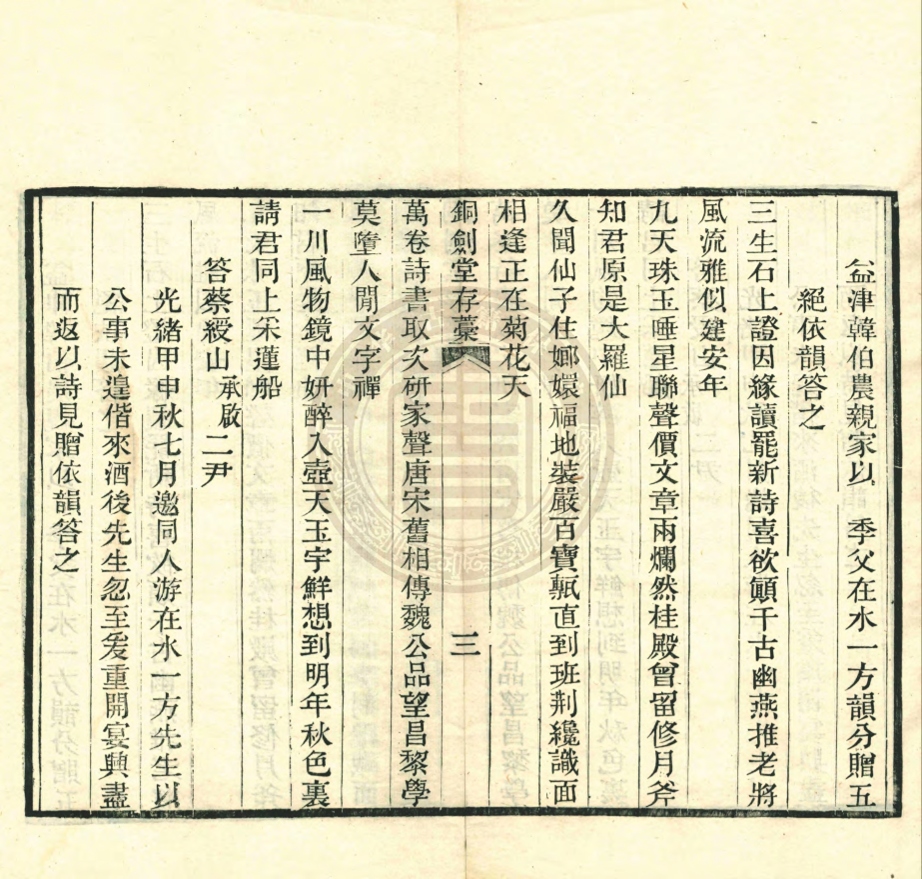 益津韓伯農親家以　季父在水一方韻分贈五
絕依韻答之
三生石上證因緣讀罷新詩喜欲顚千古幽燕推老將
風流雅似建安年
九天珠玉唾星聯聲價文章兩爛然桂殿曾留修月斧
知君原是大羅仙
久聞仙子住嫏嬛福地裝嚴百寶甎直到班荆纔識面
相逢正在菊花天
銅劍堂存藁　三
萬卷詩書取次研家聲唐宋舊相傳魏公品望昌黎學
莫墮人閒文字禪
一川風物鏡中妍醉入壺天玉宇鮮想到明年秋色裏
請君同上采蓮船
答蔡綬山承啟二尹
光緒甲申秋七月邀同人游在水一方先生以
公事未遑偕來酒後先生忽至爰重開宴興盡
而返以詩見贈依韻答之